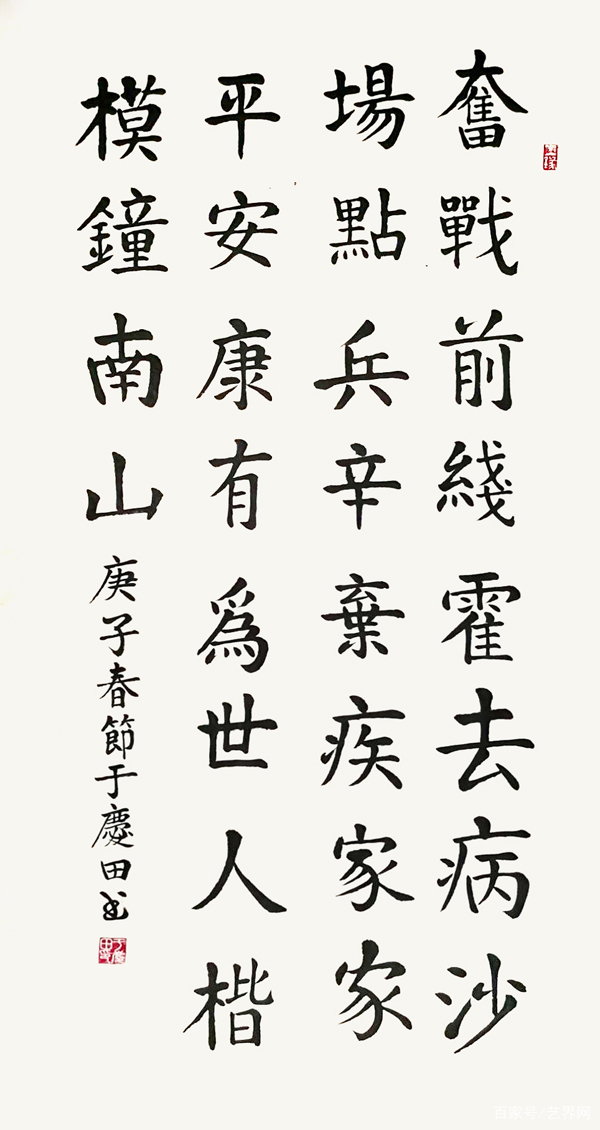 奮戰前綫霍去病沙
場點兵辛棄疾家家
平安康有爲世人楷
模鐘南山
庚子春節于慶田书
百家号/艺界网